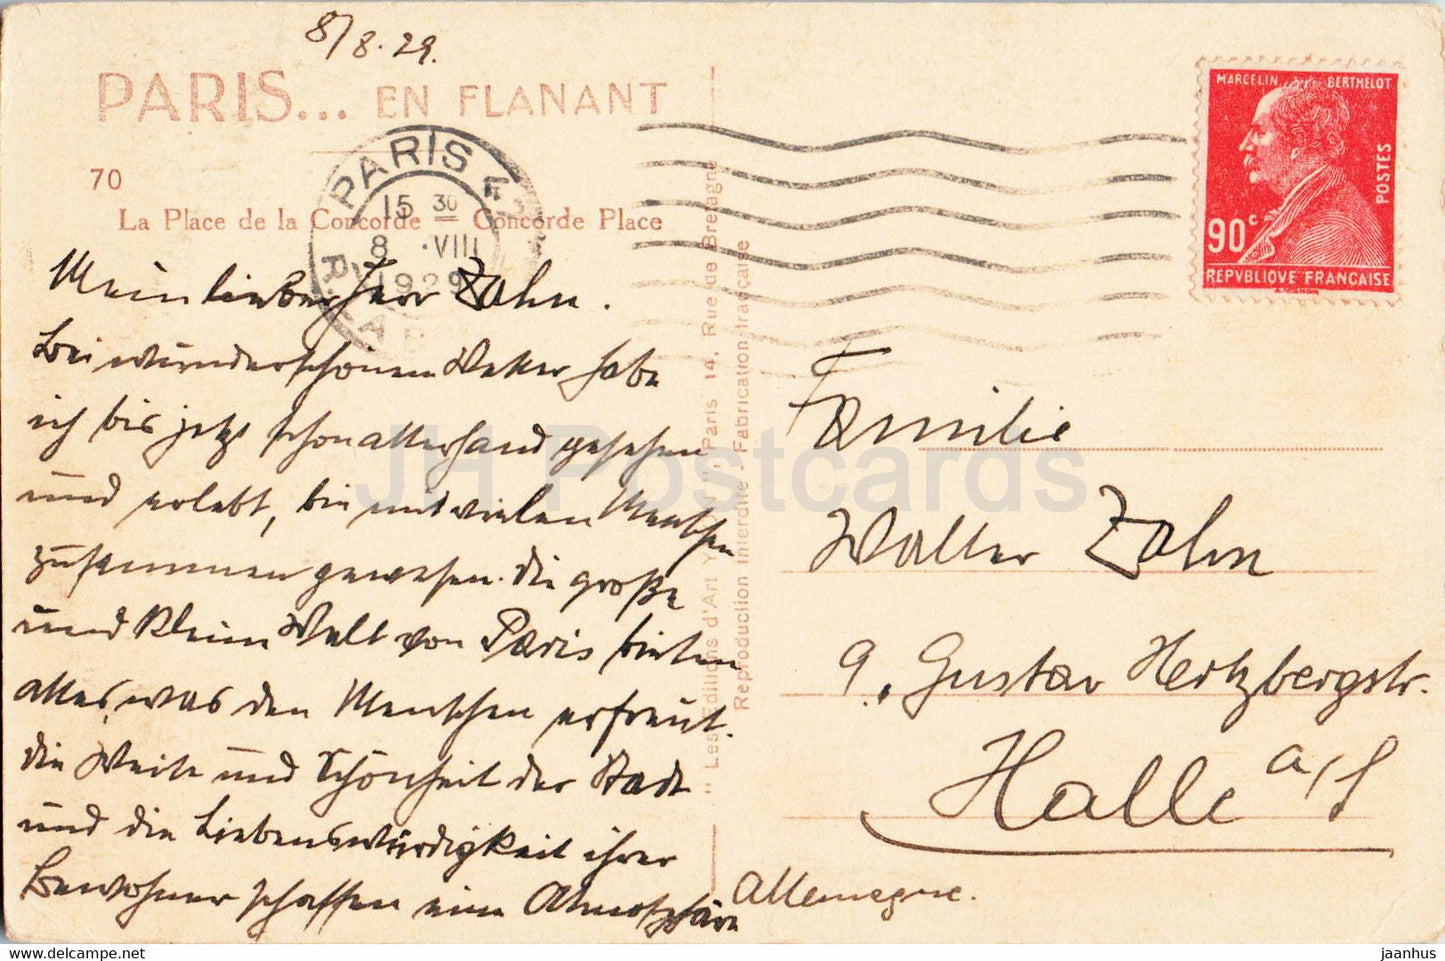 8/8.29.
PARIS... EN FLANANT
70
La Place de la Concorde — Concorde Place
PARIS 4
15 30
8 ·VIII
1929
MARCELIN BERTHELOT
POSTES
90c
REPVBLIQVE FRANÇAISE
Mein lieber Herr Zahn.
Bei wunderschönem Wetter habe
ich bis jetzt schon allerhand gesehen
und erlebt, bin mit vielen Menschen
zusammen gewesen. Die große
und kleine Welt von Paris bieten
alles, was den Menschen erfreut.
Die Weite und Schönheit der Stadt
und die Liebenswürdigkeit ihrer
Bewohner schaffen eine Atmosphäre
" Les Editions d'Art Paris 14, Rue de Bretagne
Reproduction interdite - Fabrication française
Familie
Walter Zahn
9, Gustav Hertzbergstr.
Halle a/S
Allemagne.
JH Postcards
jaanhus